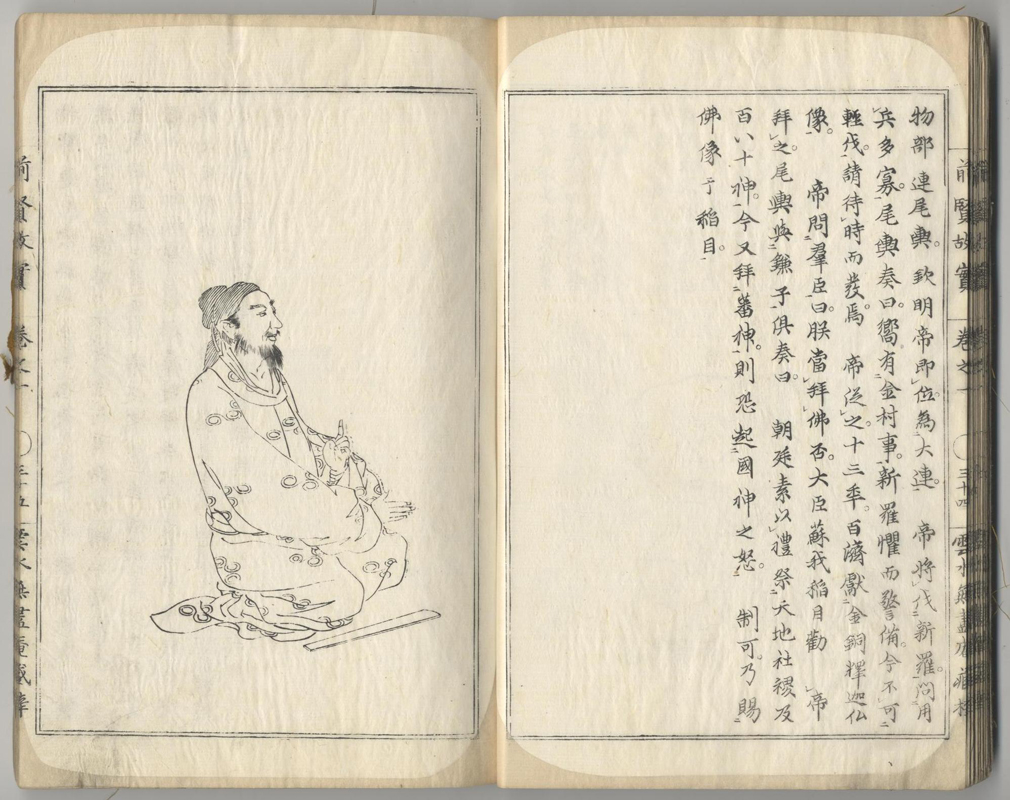 物部連尾輿。 欽明帝即位。為大連。 帝將伐新羅。問用
兵多寡。尾輿奏曰。嚮有金村事。新羅懼而警備。今不可
輕伐。請待時而發焉。 帝從之。十三年。百濟獻金銅釋迦仏
像。 帝問羣臣曰。朕當拜佛否。大臣蘇我稲目勸 帝
拜之。尾輿與鎌子俱奏曰。 朝廷素以禮祭天地社稷及
百八十神。今又拜蕃神。則恐起國神之怒。 制可。乃賜
佛像于稲目。
前賢故實 卷之一 三十四 雲水無盡庵
前賢故實 卷之一 三十五 雲水無盡庵藏梓